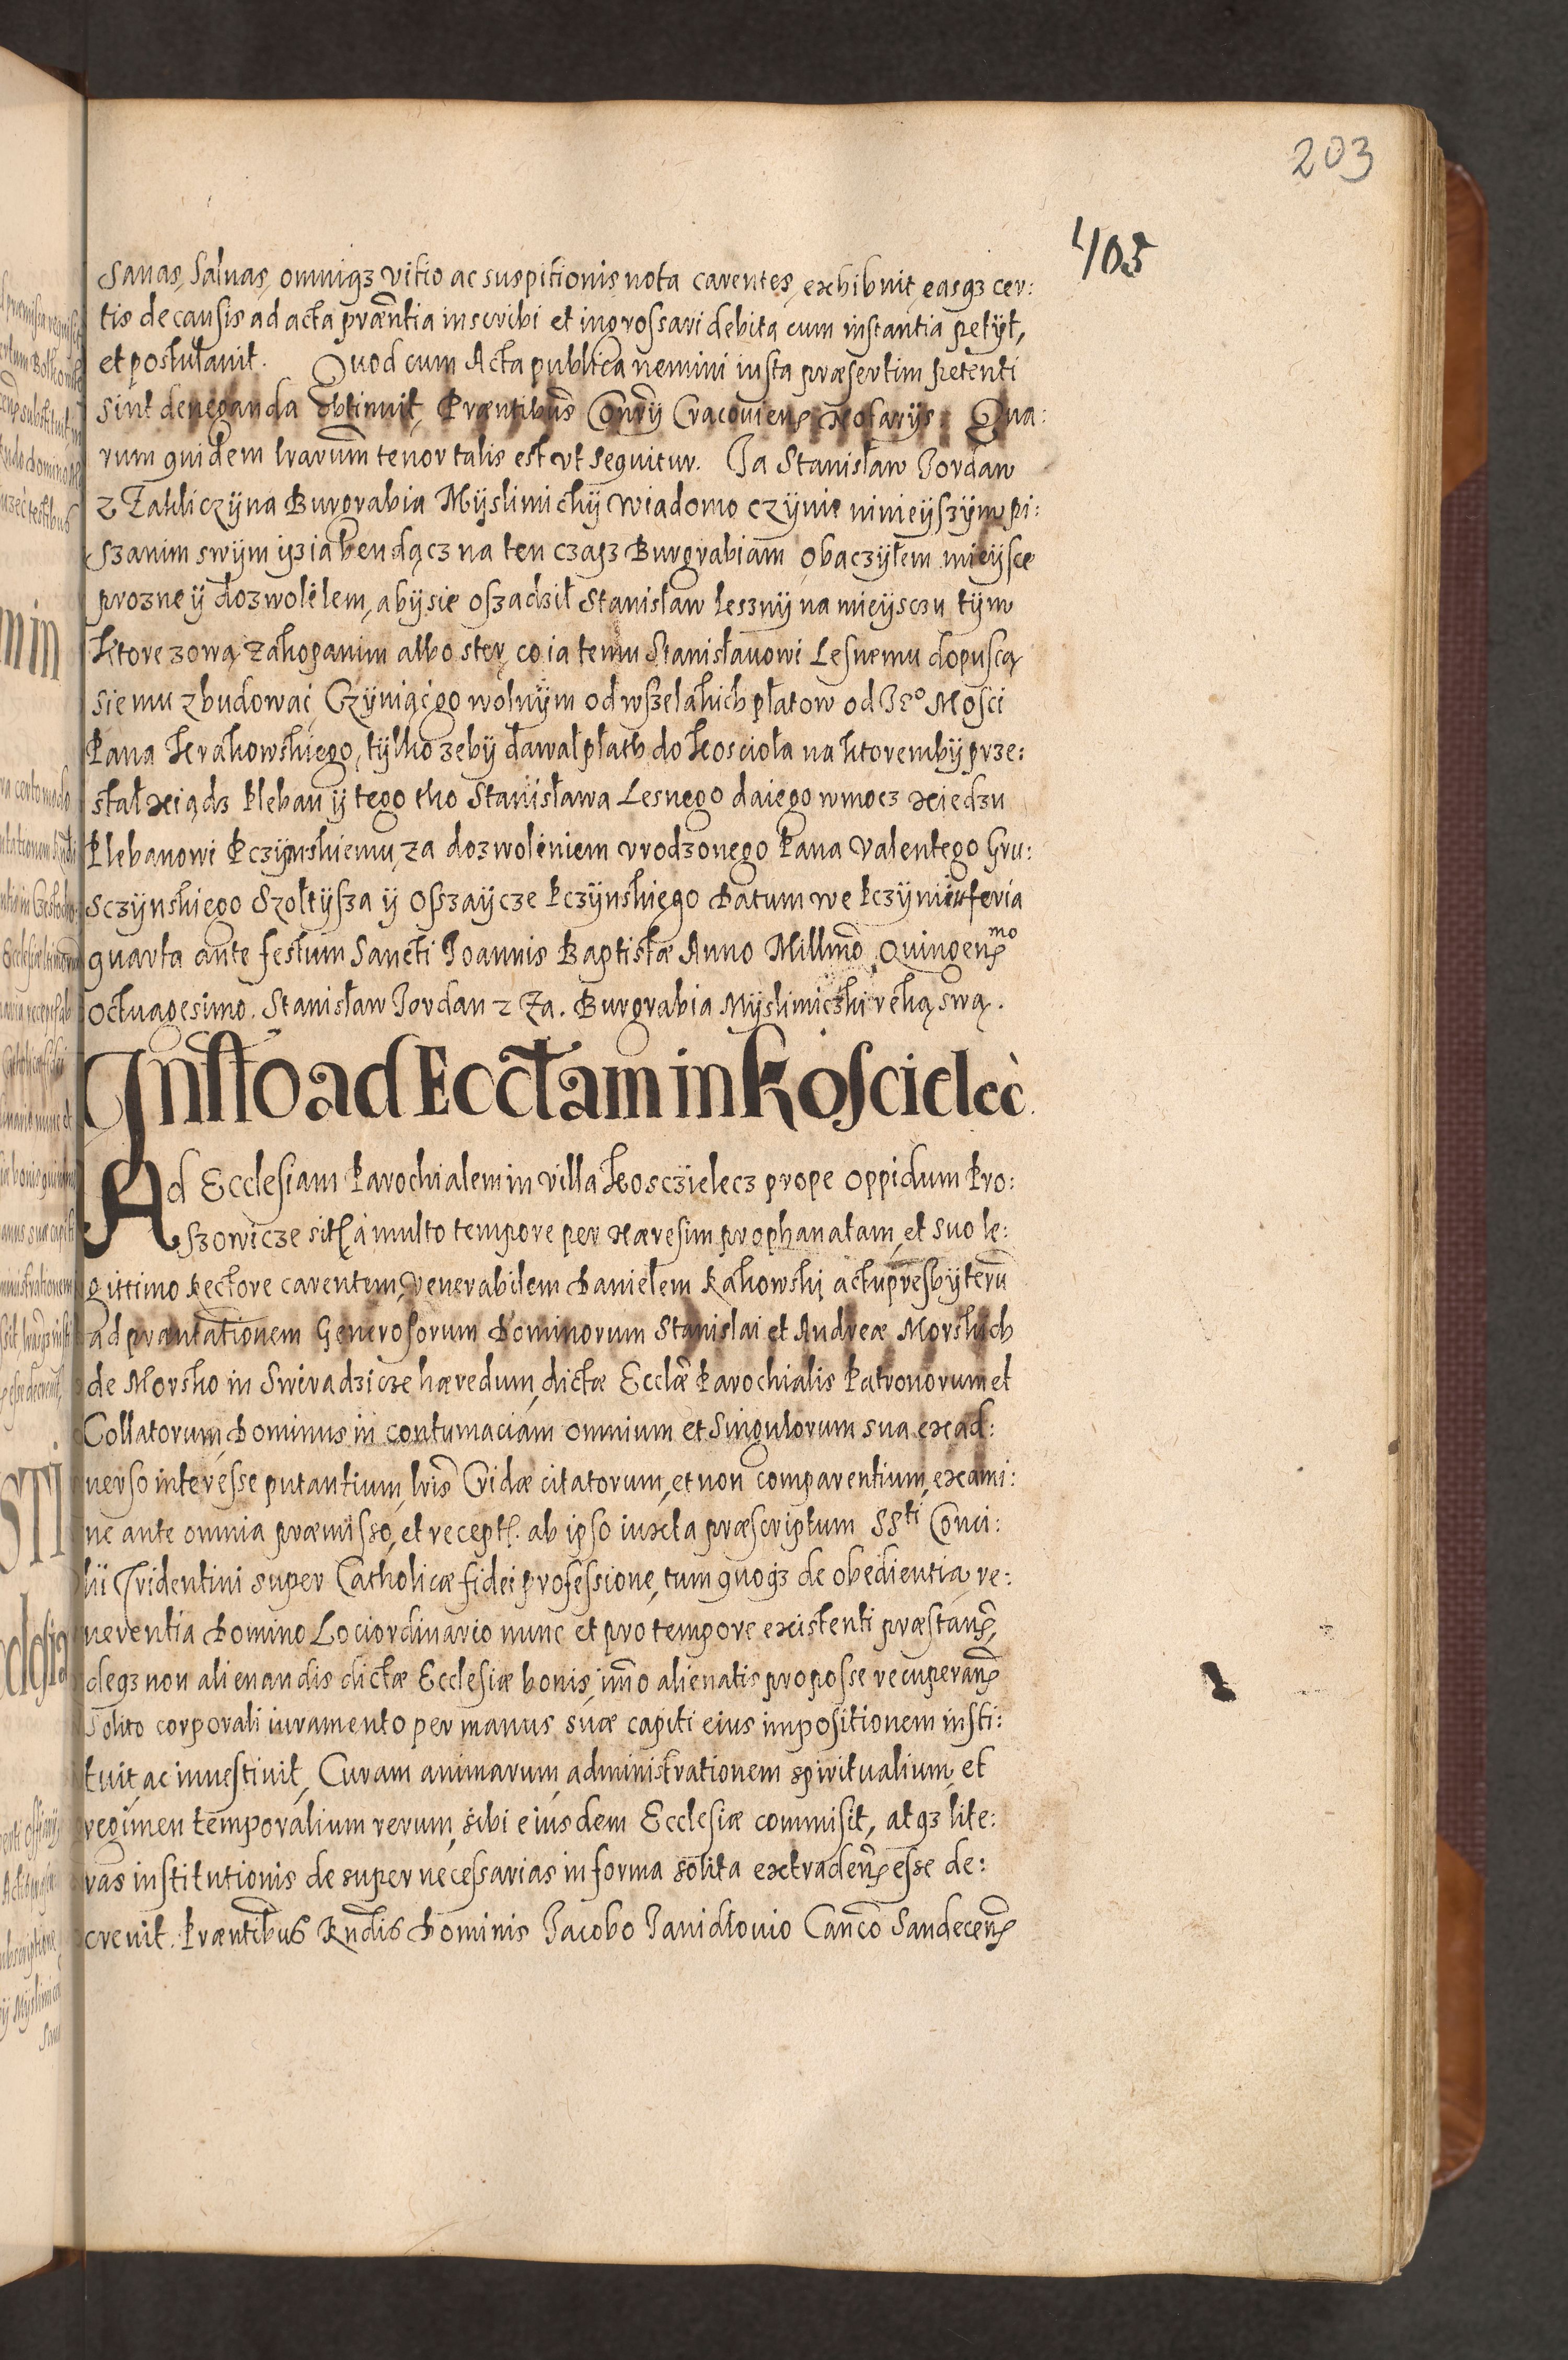 203
405
sanas, saluas, omniqz vitio ac suspitionis nota carentes, exhibuit, easqz cer:
tis de causis ad acta præntia inscribi et ingrossari debita cum instantia petÿt,
et postulauit. Quod cum Acta publica nemini iusta præsertim petenti
sint deneganda obtinuit, Præntibus Conrÿ Cracoviens Notarÿs. Qua:
rum quidem lrarum tenor talis est vt sequitur. Ja Stanisław Jordan
z Zakliczÿna Burgrabia Mÿslimichÿ wiadomo czÿnie ninieÿszÿm pi:
szanim swÿm ÿz ia bendącz na ten czasz Burgrabiam obaczÿłem mieÿsce
prozne ÿ dozwolełem, abÿ sie oszadził Stanisław leznÿ na mieÿsczu tÿm
ktore zową zakopanim albo ster, co ia temu Stanisławowi Lesnemu dopuscą
sie mu zbudowai, Czÿniąc go wolnÿm od wszelakich płatow od Jeo Mosci
Pana Krakowskiego, tÿlko zebÿ dawał płath do Kosciola na ktorembÿ prze:
stał xiądz Pleban ÿ tego tho Stanisława Lesnego daie go w mocz xiedzu
Plebanowi Pczÿmskiemu, za dozwoleniem vrodzonego Pana Valentego Gru:
sczÿnskiego Szołtÿsza ÿ Oszaÿcze Pczÿnskiego Datum we Pczÿni in feria
quarta ante festum Sancti Joannis Baptistæ Anno Millmo Quingensmo
octuagesimo. Stanisław Jordan z Za. Burgrabia Mÿslimiczki reką swą.
Instto ad Ecctam in Koscielec.
Ad Ecclesiam Parochialem in villa Kosczielecz prope oppidum Pro:
szowicze sitt a multo tempore per Hæresim prophanatam, et suo le:
gittimo Rectore carentem, Venerabilem Danielem Rakowski actu presbÿterũ
ad præntationem Generosorum Dominorum Stanislai et Andreæ Morskich
de Morsko in Sieradzicze hæredum, dictæ Ecclæ Parochialis Patronorum et
Collatorum Dominus in contumaciam omnium et singulorum sua ex ad:
uerso interesse putantium, lris Cridæ citatorum, et non comparentium, exami:
ne ante omnia præmisso, et recept. ab ipso iuxta præscriptum SSti Conci:
lii Tridentini super Catholicæ fidei professione, tum quoqz de obedientia, re:
uerentia Domino Loci ordinario nunc et pro tempore existenti præstans,
deqz non alienandis dictæ Ecclesiæ bonis, imo alienatis pro posse recuperans
solito corporali iuramento per manus suæ capiti eius impositionem insti:
tuit, ac inuestiuit, Curam animarum, administrationem spiritualium, et
regimen temporalium rerum, sibi eiusdem Ecclesiæ commisit, atqz lite:
ras institutionis de super necessarias in forma solita extradens esse de:
creuit. Præntibus Rndis Dominis Jacobo Janidlouio Canco Sandecens